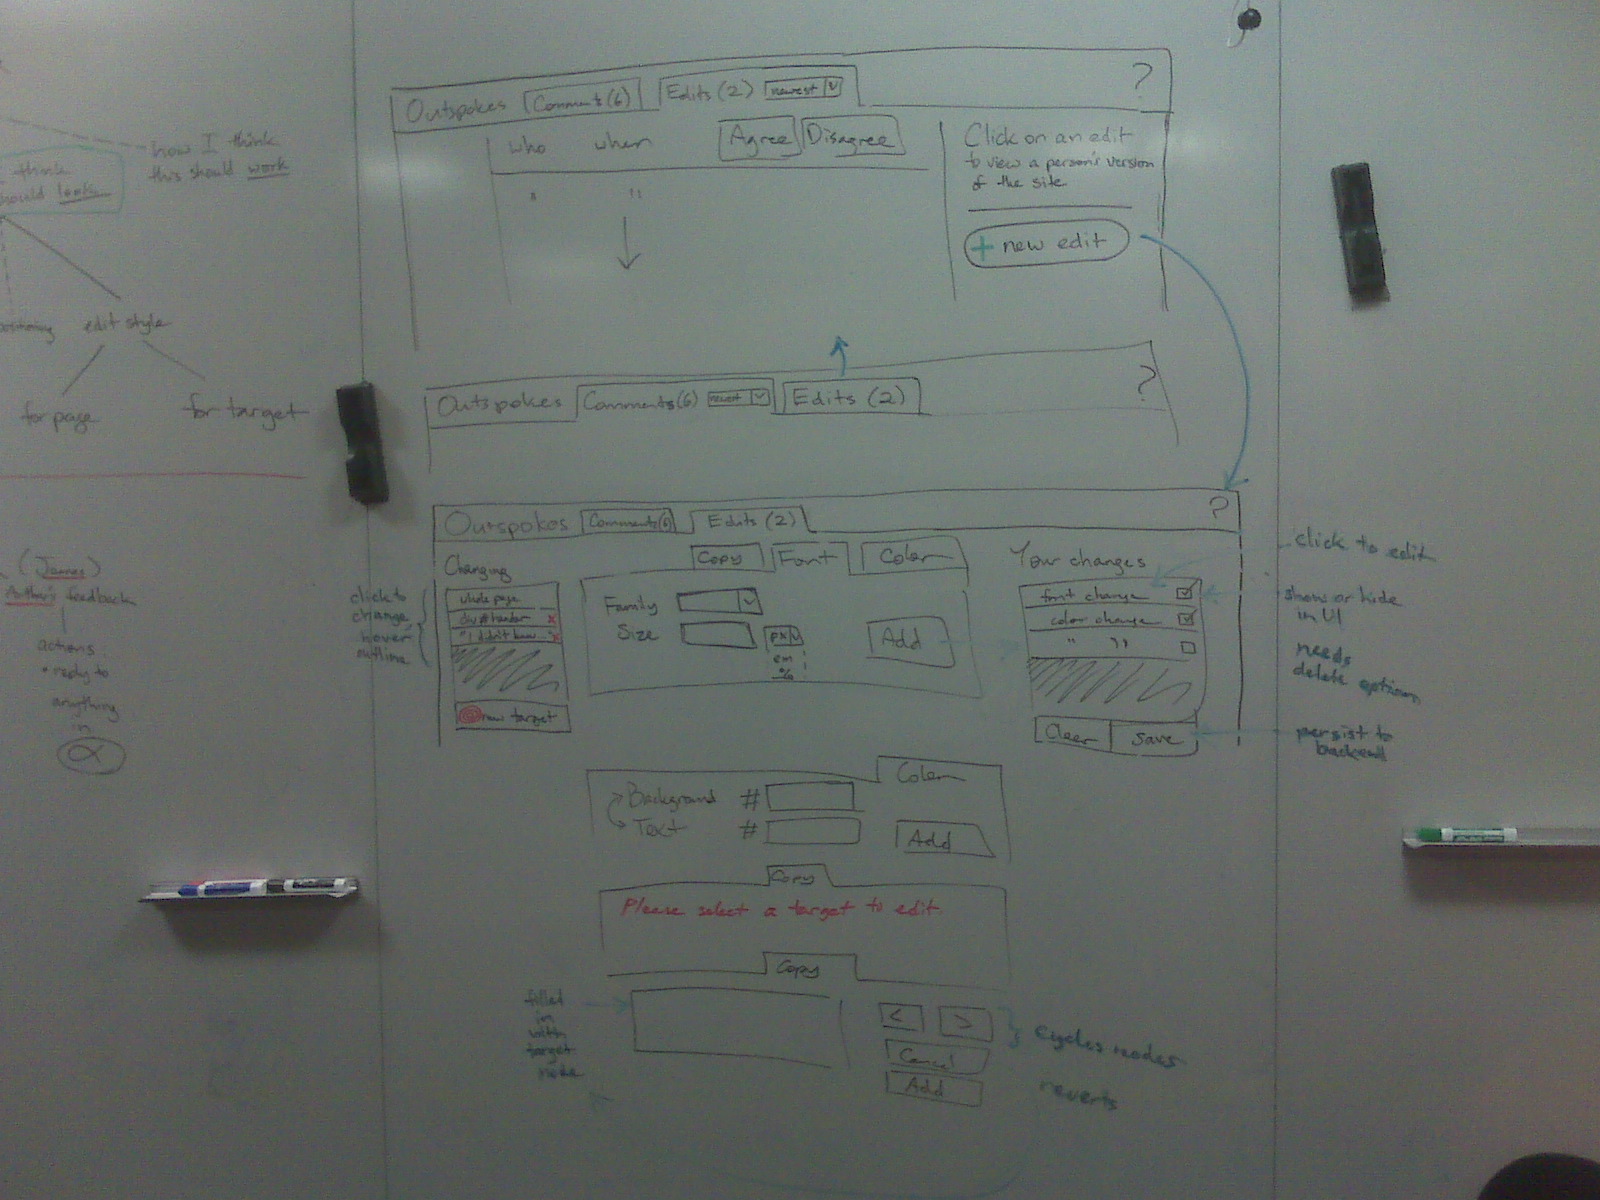 how I think
this should work
think
should look
positioning
edit style
for page
for target
(James)
Author's feedback
actions
reply to
anything
in
α
Outspokes
Comments (6)
Edits (2)
newest
?
who
when
Agree
Disagree
"
"
Click on an edit
to view a person's version
of the site
+ new edit
Outspokes
Comments (6)
newest
Edits (2)
?
Outspokes
Comments (6)
Edits (2)
?
Changing
whole page
div#header x
"I didn't know..." x
new target
click to
change
hover
outline
Copy
Font
Color
Family
Size
px
em
%
Add
Your changes
font change
color change
" "
Clear
Save
click to edit
show or hide
in UI
needs
delete option
persist to
backend
Color
Background #
Text #
Add
Copy
Please select a target to edit
Copy
filled
in
with
target
node
<
>
Cancel
Add
cycles nodes
reverts